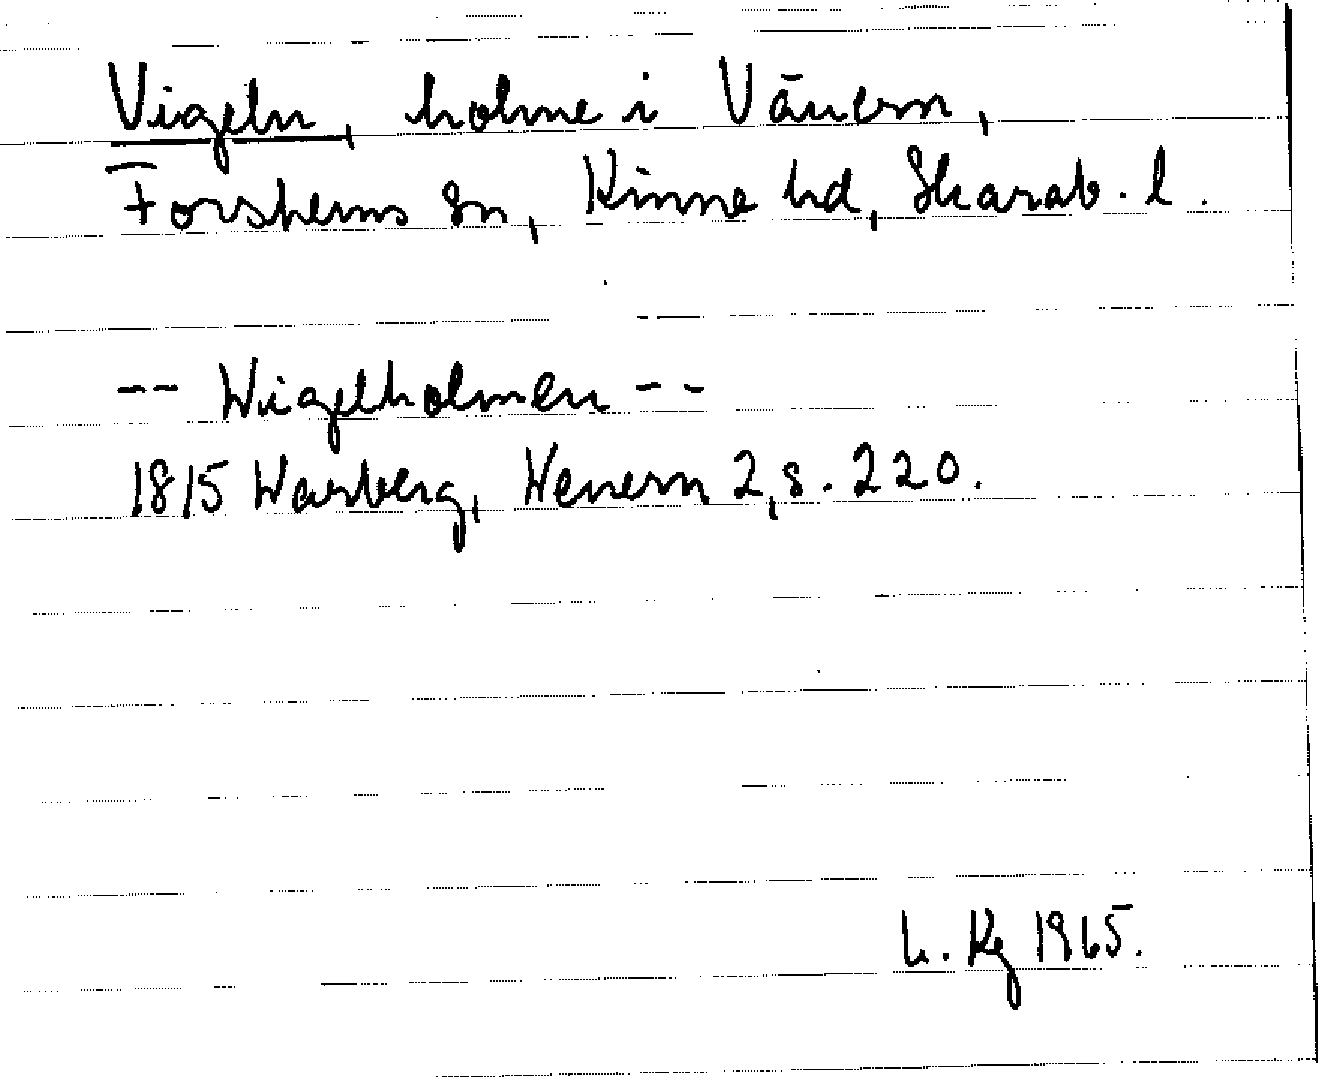 Vigeln, holme i Vänern,
Forshems sn, Kinne hd, Skarab. l.
-- Wigelholmen --
1815 Warberg, Wenern 2, s. 220.
Kg 1965.